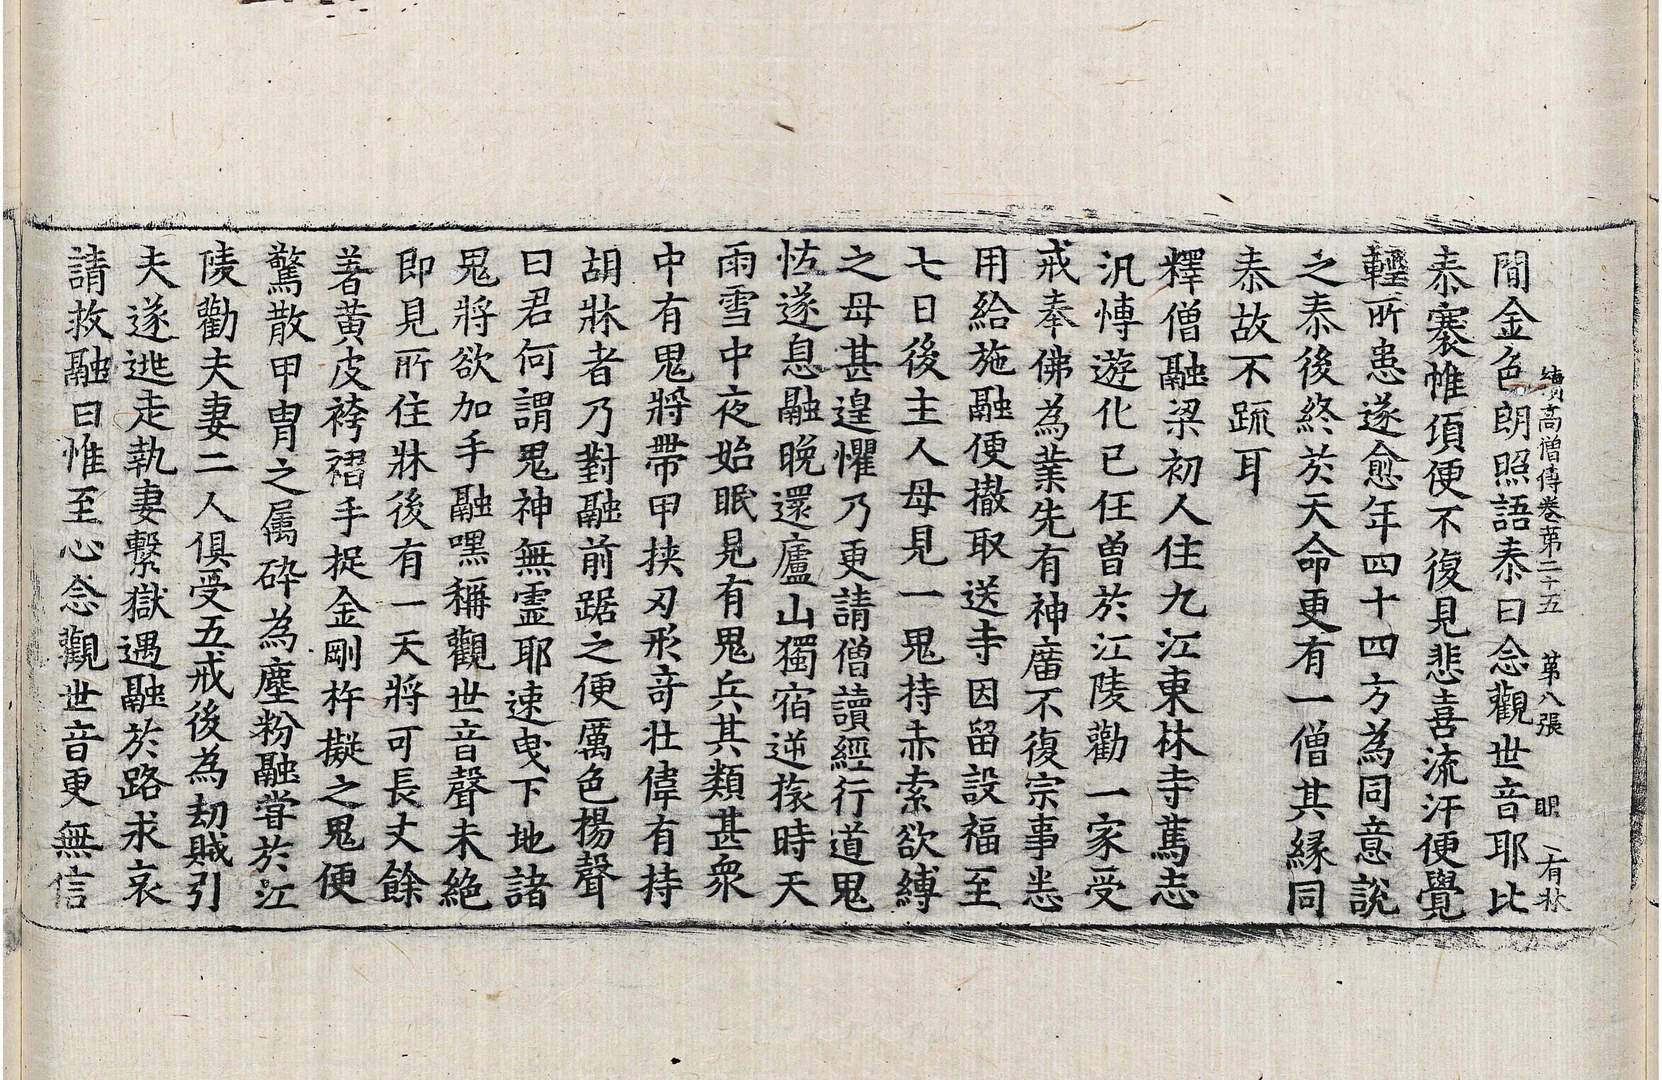 續高僧傳卷第二十五 第八張 眠 有林
間金色朗照語泰曰念觀世音耶比
泰褰帷頃便不復見悲喜流汗便覺
輕所患遂愈年四十四方為同意說
之泰後終於天命更有一僧其緣同
泰故不疏耳
釋僧融梁初人住九江東林寺篤志
汎愽遊化已任曾於江陵勸一家受
戒奉佛為業先有神廟不復宗事悉
用給施融便撤取送寺因留設福至
七日後主人母見一鬼持赤索欲縛
之母甚遑懼乃更請僧讀經行道鬼
恠遂息融晚還廬山獨宿逆旅時天
雨雪中夜始眠見有鬼兵其類甚衆
中有鬼將帶甲挟刃形竒壯偉有持
胡牀者乃對融前踞之便厲色揚聲
曰君何謂鬼神無霊耶速曳下地諸
鬼將欲加手融嘿稱觀世音聲未絕
即見所住牀後有一天將可長丈餘
著黃皮袴褶手捉金剛杵擬之鬼便
驚散甲冑之屬碎為塵粉融甞於江
陵勸夫妻二人俱受五戒後為劫賊引
夫遂逃走執妻繫獄遇融於路求哀
請救融曰惟至心念觀世音更無信